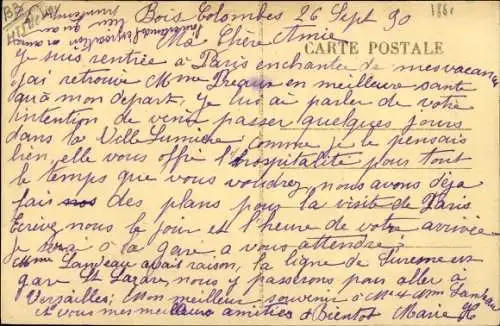 Bois Colombes 26 Sept 30
1881
Ma Chère Amie
CARTE POSTALE
Je suis rentrée à Paris enchantée de mes vacances
j'ai retrouvé Mme en meilleure santé
qu'à mon départ. Je lui ai parler de votre
intention de venir passer quelques jours
dans la Ville Lumière; comme je le pensais
bien, elle vous offre l'hospitalité pour tout
le temps que vous voudrez, nous avons déja
fait des plans pour la visite de Paris
Ecrivez nous le jour et l'heure de votre arrivée
je serai à la gare a vous attendre;
Mme Landeau avait raison, la ligne de Suresnes est
gare St Lazare, nous y passerons pour aller à
Versailles; Mon meilleur souvenir à Mr & Mme Landeau
à vous mes meilleures amitiés à Bientot Marie